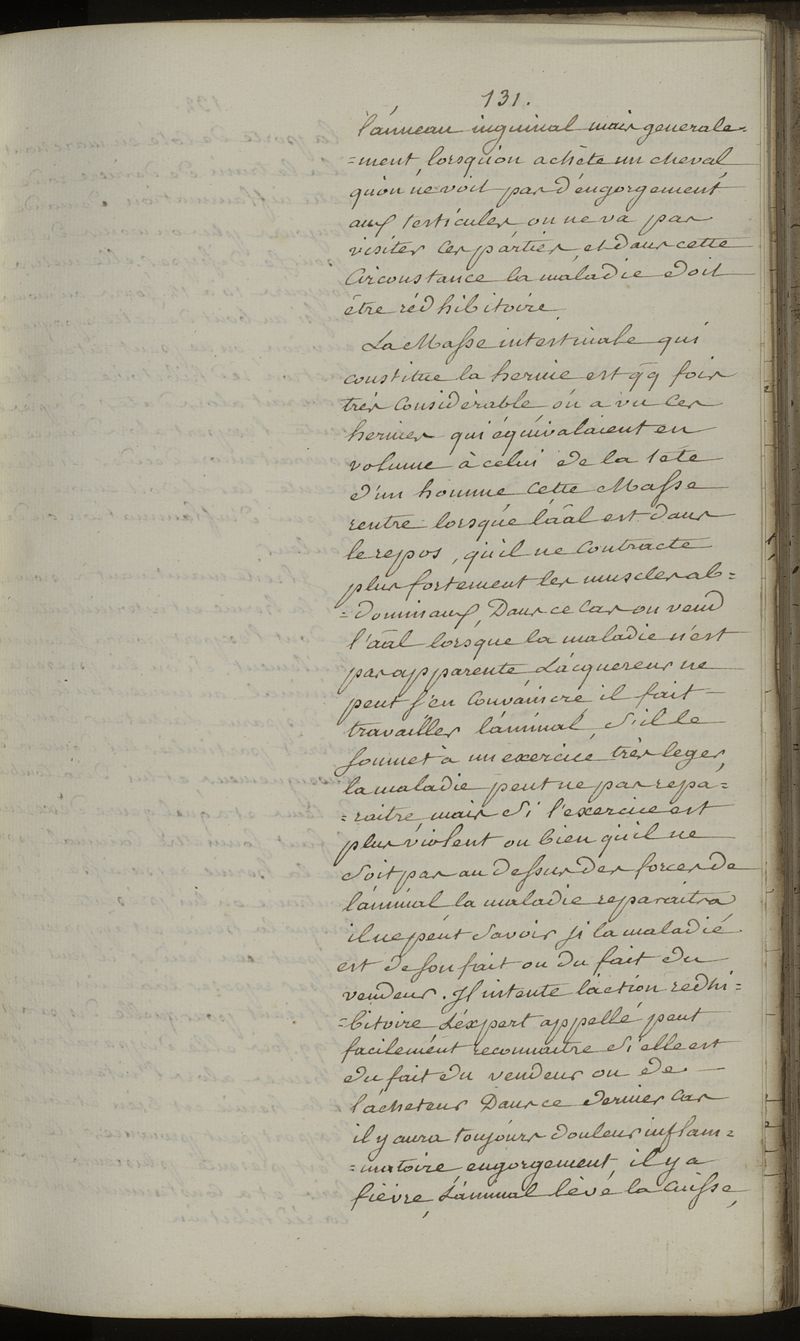 131.
l'anneau inguinal mais generale-
=ment lorsqu'on achète un cheval
qu'on ne voit pas d'engorgement
aux testicules on ne va pas
visiter ces parties, et dans cette
Circonstance la maladie doit
être rédhibitoire
La Masse intestinale qui
constitue la hernie est qq fois
très considérable on a vu ces
hernies qui équivalaient en
volume à celui de la tete
d'un homme cette Masse
rentre lorsque l'aâl est dans
le repos, qu'il ne contracte
plus fortement les muscles ab=
=dominaux, Dans ce cas on vend
l'aâl lorsque la maladie n'est
pas apparente L'acquereur ne
peut s'en convaincre il fait
travailler l'animal, s'il le
soumet à un exercice très leger,
la maladie peut ne pas repa=
=raitre, mais si l'exercice est
plus violent ou bien qu'il ne
soit pas au dessus des forces de
l'animal la maladie reparaitra
il ne peut savoir si la maladie
est de son fait ou du fait du
vendeur. Il intente l'action redhi=
=bitoire L'expert appellé peut
facilement reconnaitre si elle est
du fait du vendeur ou de
l'acheteur Dans ce dernier cas
il y aura toujours douleur inflam=
=matoire, engorgement, il y a
fièvre, L'animal lève la cuisse,